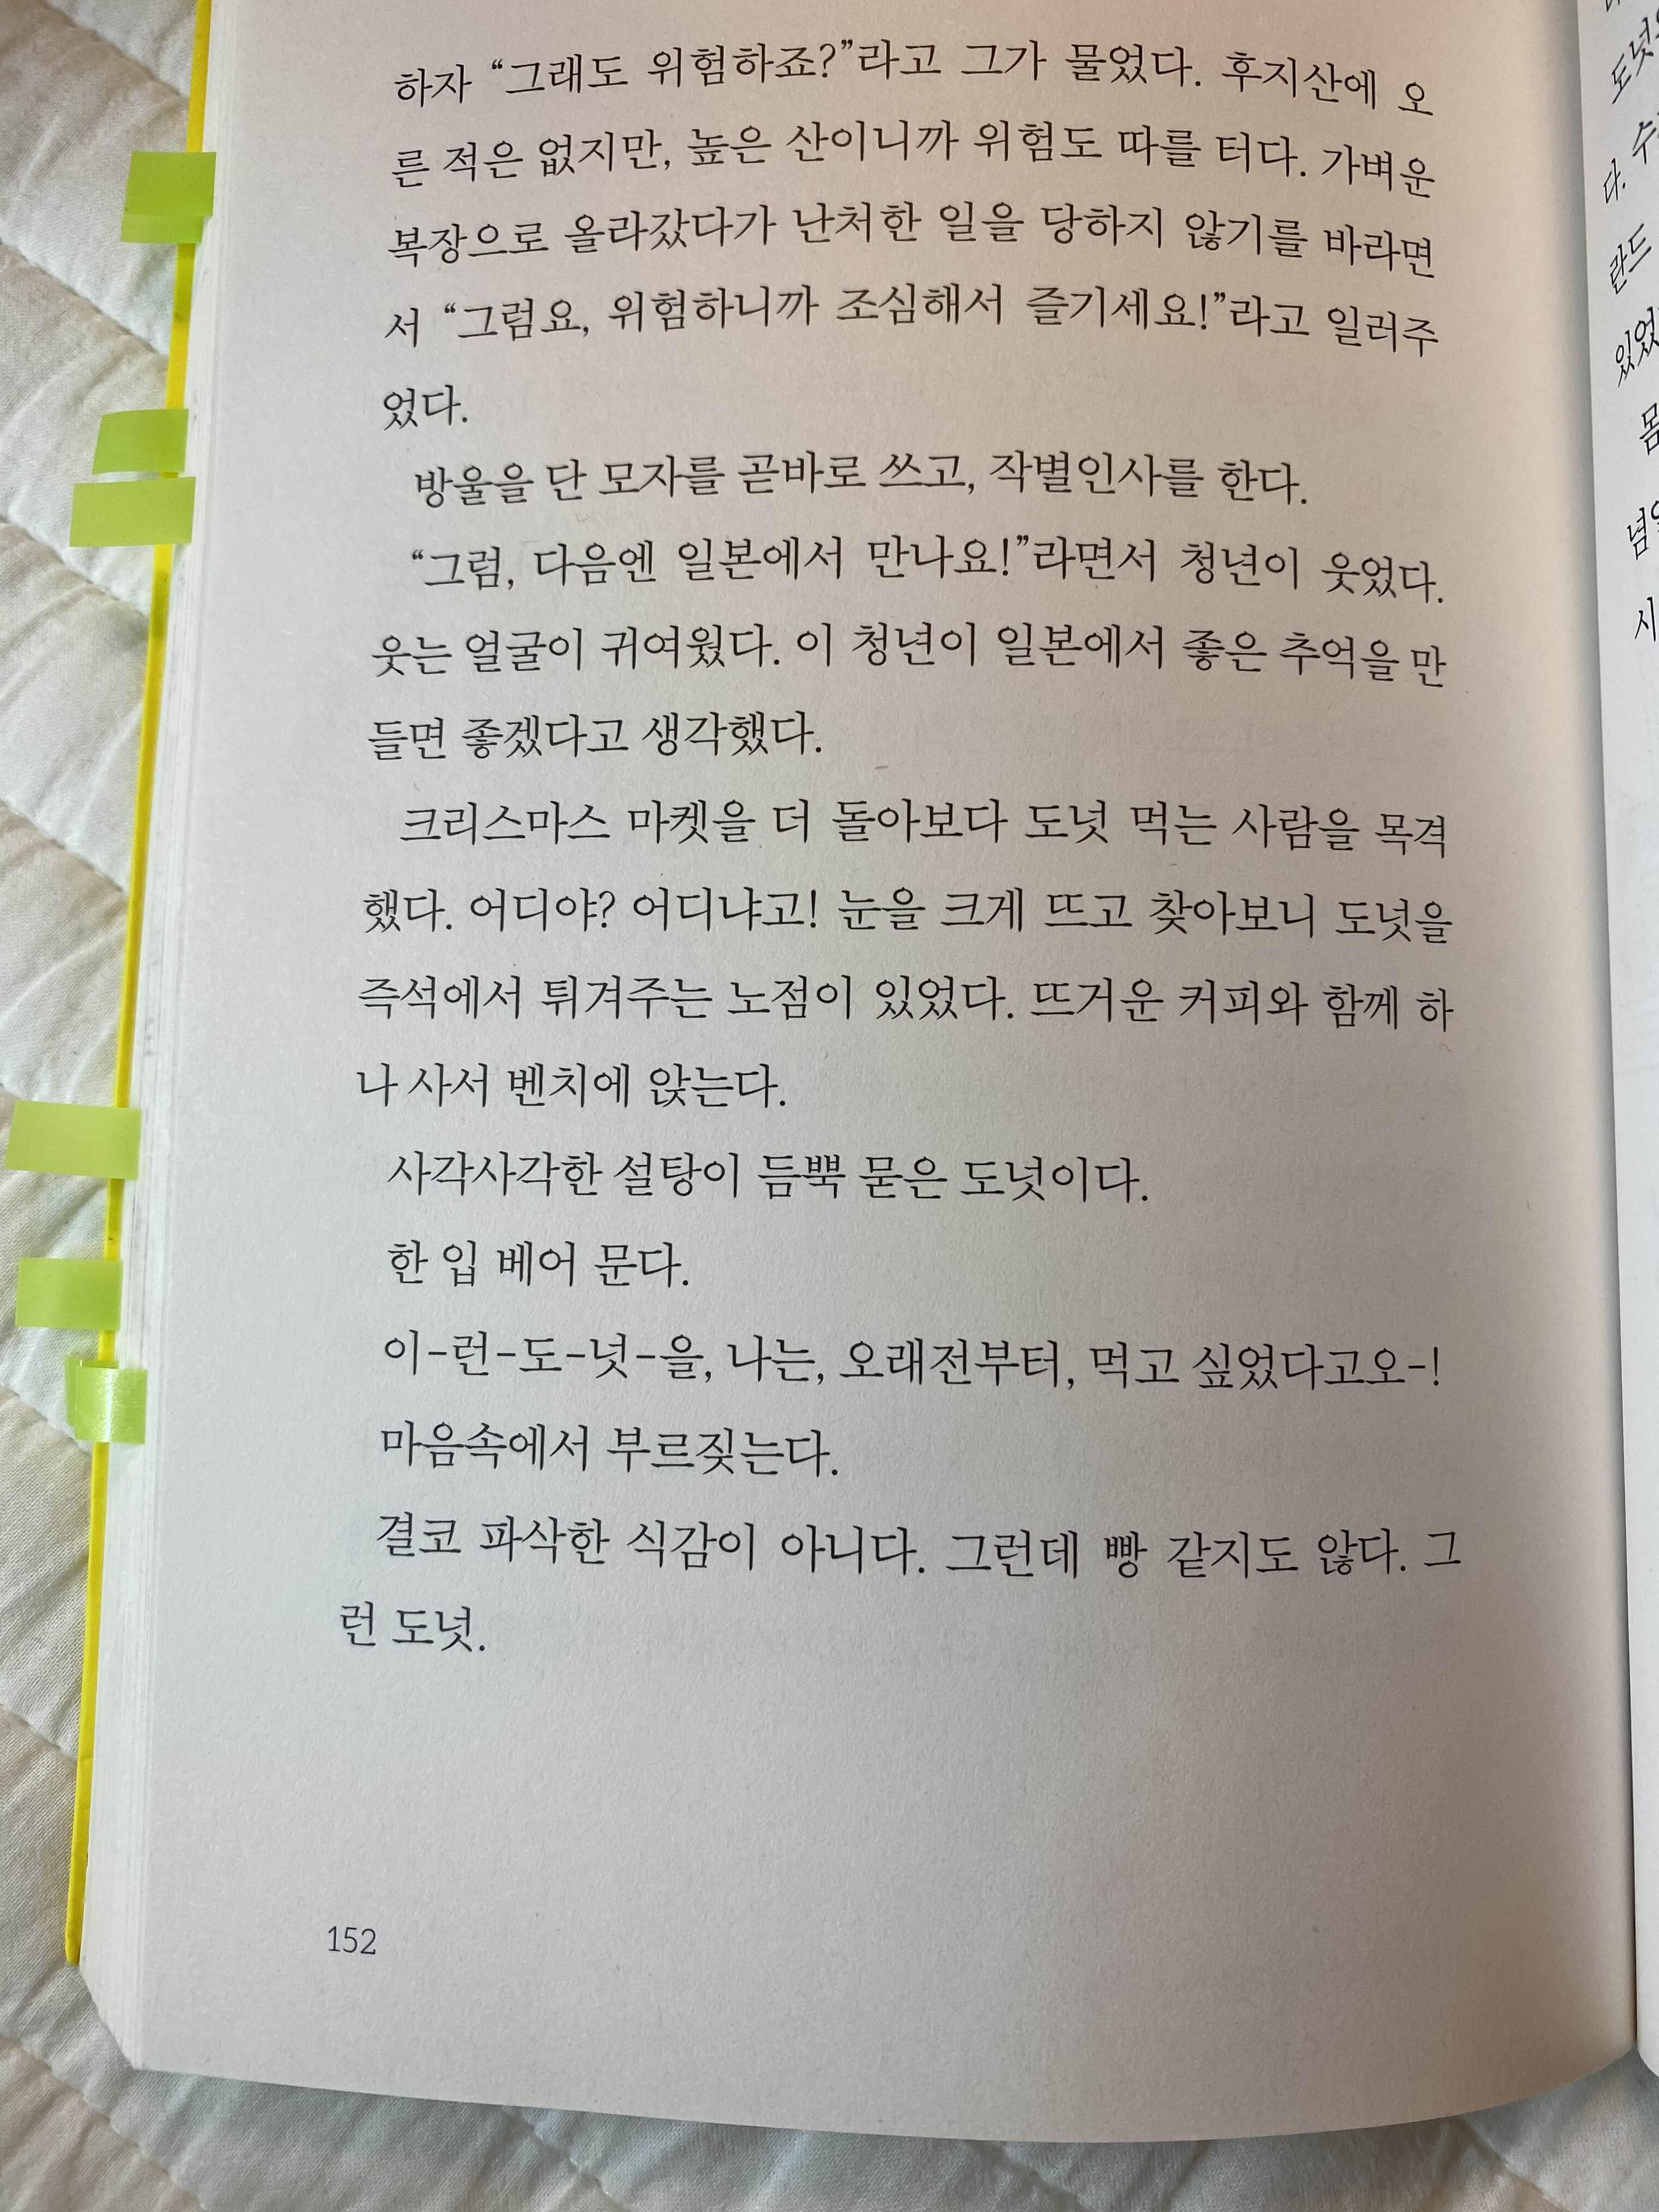 하자 “그래도 위험하죠?”라고 그가 물었다. 후지산에 오
른 적은 없지만, 높은 산이니까 위험도 따를 터다. 가벼운
복장으로 올라갔다가 난처한 일을 당하지 않기를 바라면
서 “그럼요, 위험하니까 조심해서 즐기세요!”라고 일러주
었다.
방울을 단 모자를 곧바로 쓰고, 작별인사를 한다.
“그럼, 다음엔 일본에서 만나요!”라면서 청년이 웃었다.
웃는 얼굴이 귀여웠다. 이 청년이 일본에서 좋은 추억을 만
들면 좋겠다고 생각했다.
크리스마스 마켓을 더 돌아보다 도넛 먹는 사람을 목격
했다. 어디야? 어디냐고! 눈을 크게 뜨고 찾아보니 도넛을
즉석에서 튀겨주는 노점이 있었다. 뜨거운 커피와 함께 하
나 사서 벤치에 앉는다.
사각사각한 설탕이 듬뿍 묻은 도넛이다.
한 입 베어 문다.
이-런-도-넛-을, 나는, 오래전부터, 먹고 싶었다고오-!
마음속에서 부르짖는다.
결코 파삭한 식감이 아니다. 그런데 빵 같지도 않다. 그
런 도넛.
152
다. 수
란드
있었
몸
시